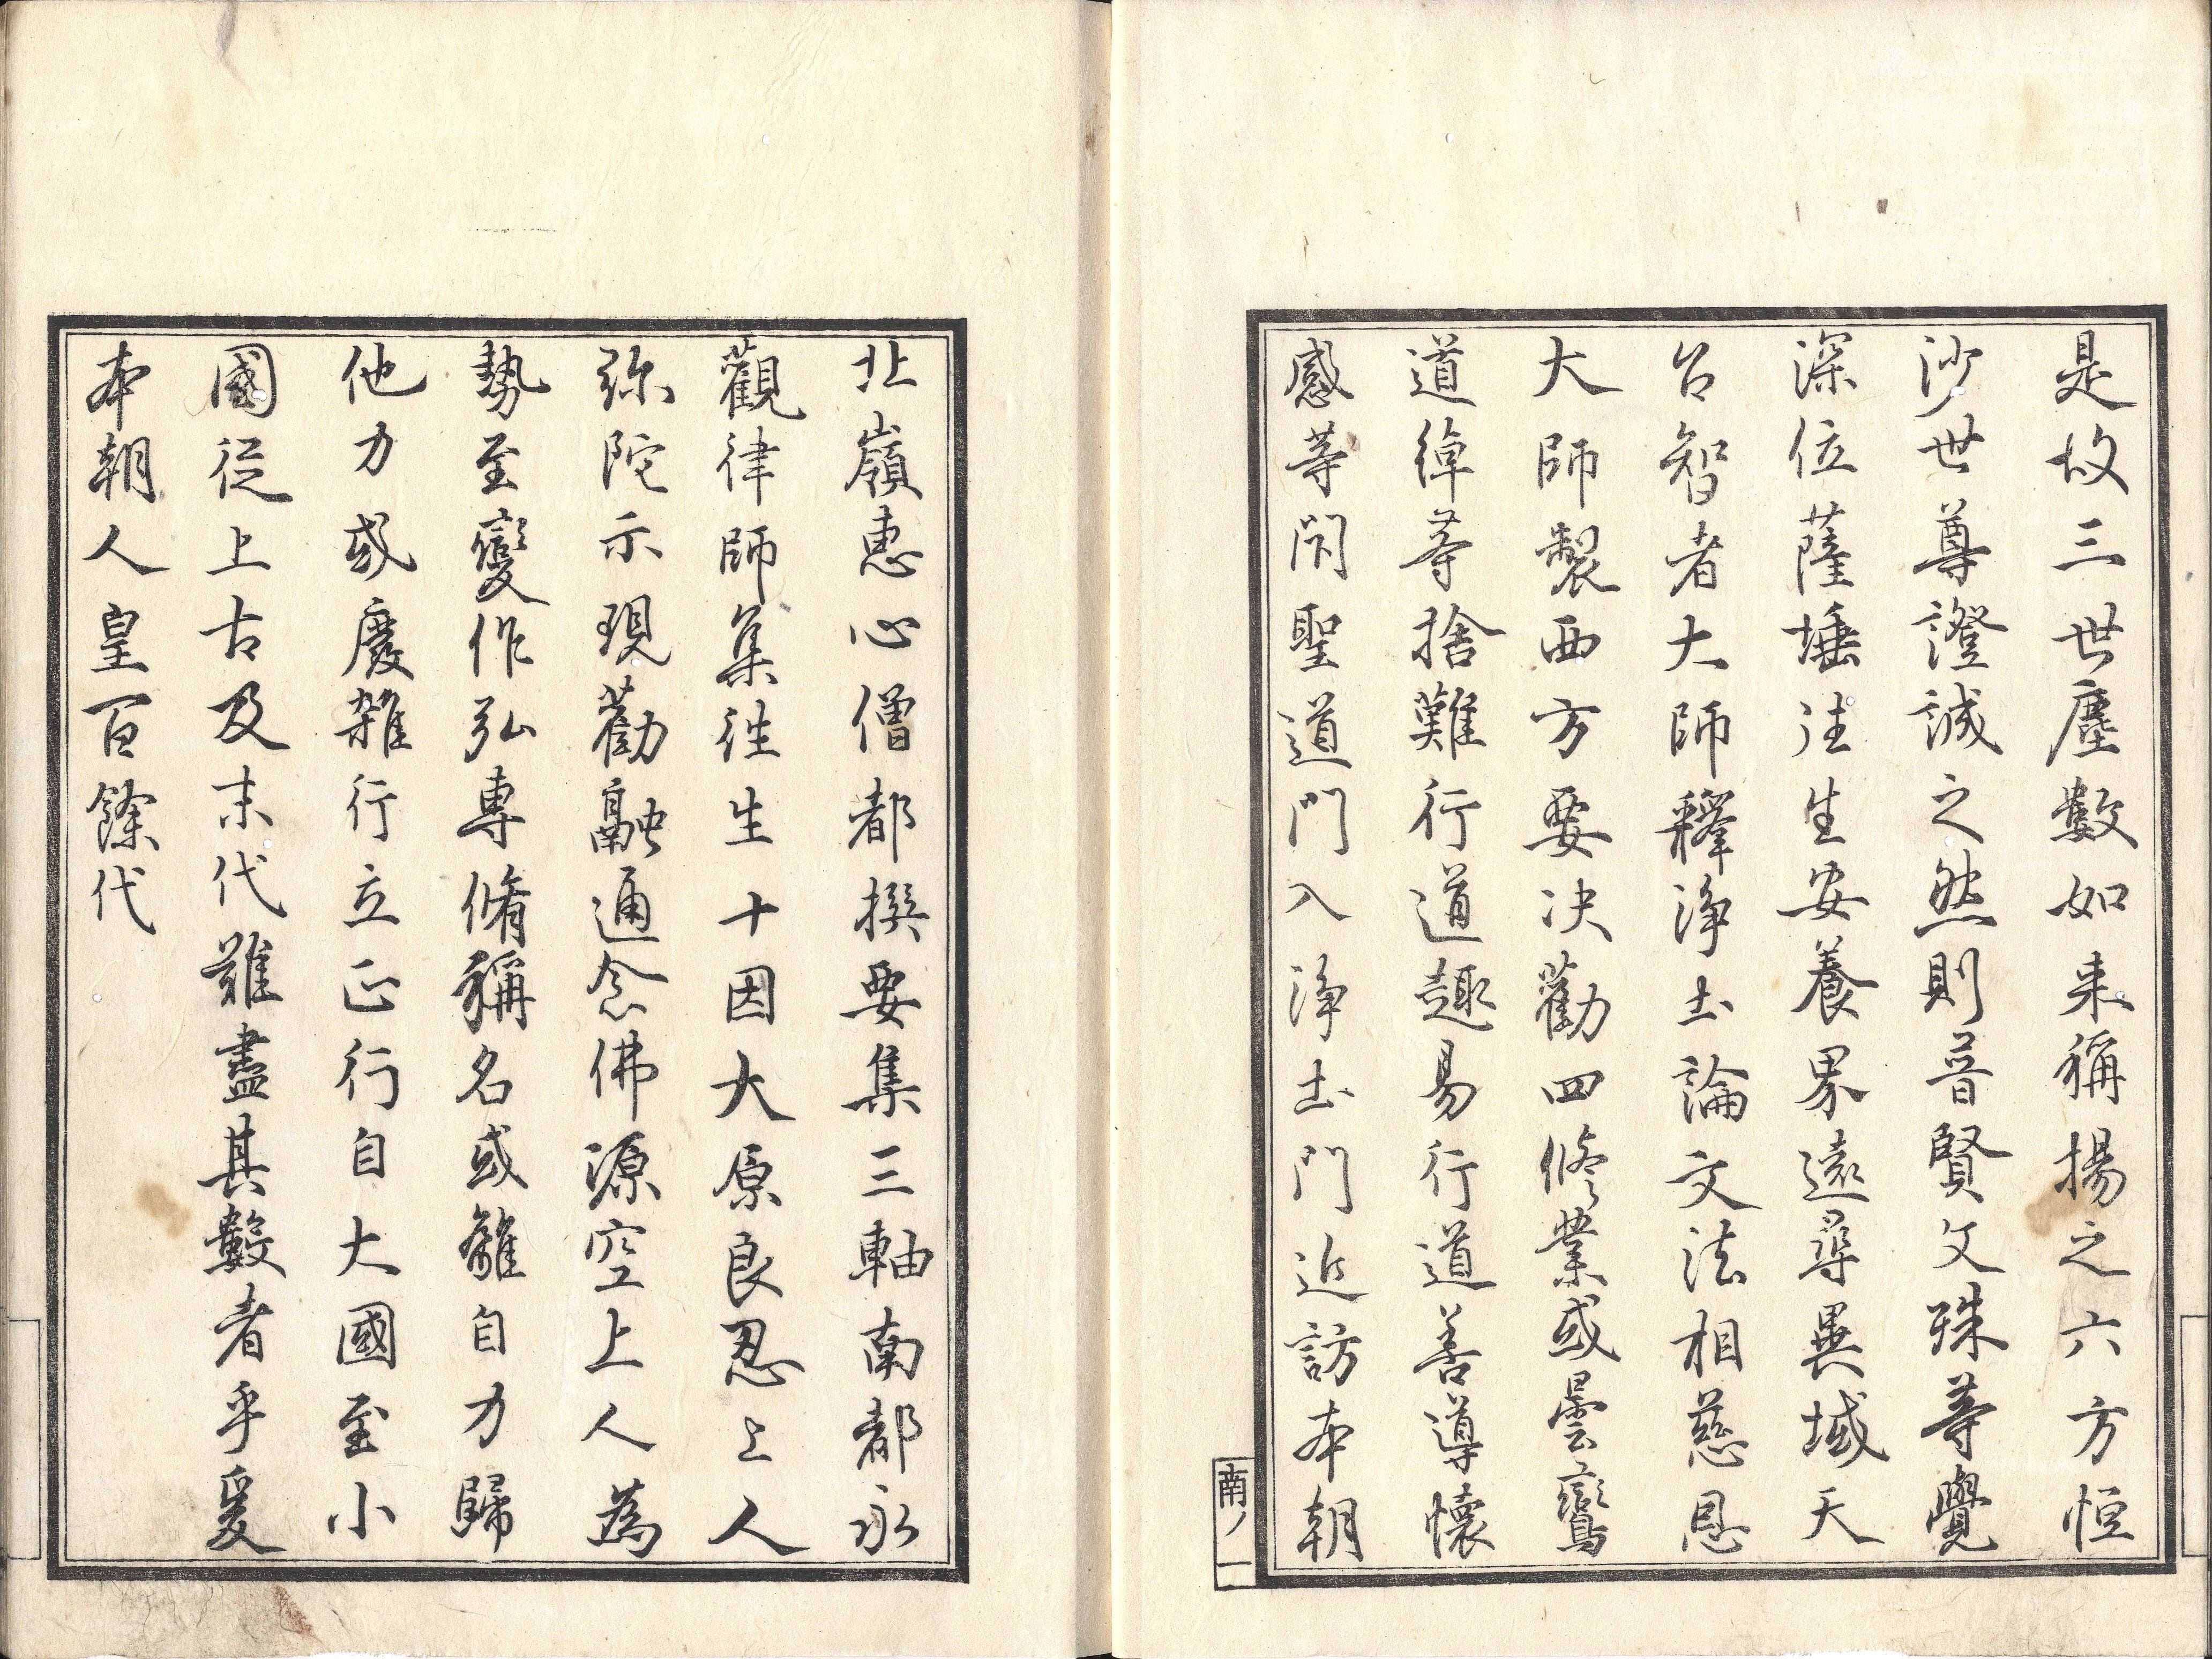 是故三世塵數如来稱揚之六方恒
沙世尊證誠之然則普賢文殊等覺
深位薩埵往生安養界遠尋異域天
台智者大師釋淨土論文法相慈恩
大師製西方要决勸四修業或曇鸞
道綽等捨難行道趣易行道善導懷
感等閇聖道門入淨土門近訪本朝
南ノ一
北嶺惠心僧都撰要集三軸南都永
觀律師集往生十因大原良忍上人
弥陀示現勸融通念佛源空上人為
勢至變作弘專脩稱名或離自力歸
他力或廢雜行立正行自大國至小
國從上古及末代雖盡其數者乎爰
本朝人皇百餘代